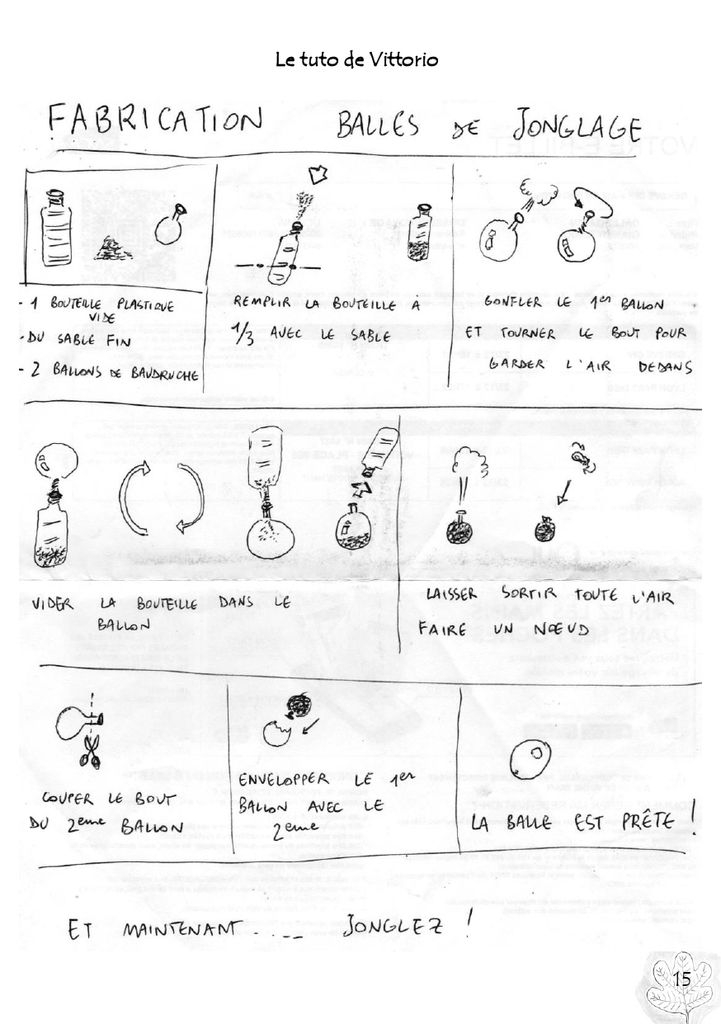 Le tuto de Vittorio
FABRICATION BALLES DE JONGLAGE
- 1 BOUTEILLE PLASTIQUE
VIDE
- DU SABLE FIN
- 2 BALLONS DE BAUDRUCHE
REMPLIR LA BOUTEILLE À
1/3 AVEC LE SABLE
GONFLER LE 1er BALLON
ET TOURNER LE BOUT POUR
GARDER L'AIR DEDANS
VIDER LA BOUTEILLE DANS LE
BALLON
LAISSER SORTIR TOUTE L'AIR
FAIRE UN NŒUD
COUPER LE BOUT
DU 2eme BALLON
ENVELOPPER LE 1er
BALLON AVEC LE
2eme
LA BALLE EST PRÊTE !
ET MAINTENANT.... JONGLEZ !
15